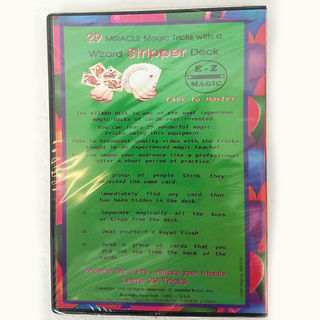 29 MIRACLE Magic Tricks with a
Wizard Stripper Deck
E-Z
MAGIC
EASY to Master
The WIZARD DECK is one of the most ingenious
magic decks of cards ever invented.
You can learn 29 wonderful magic
tricks using this equipment.
This is broadcast quality video with the tricks
taught by an experienced magic teacher.
You can amaze your audience like a professional
after a short period of practice.
A group of people think they
selected the same card.
Immediately find any card that
has been hidden in the deck.
Separate magically all the Aces
or Kings from the deck.
Deal yourself a Royal Flush!
Read a group of cards that you
did not see from the back of the
cards.
amaze your friends
Learn 29 Tricks
Copyright All Rights Reserved
Brooklyn, New York U.S.A.